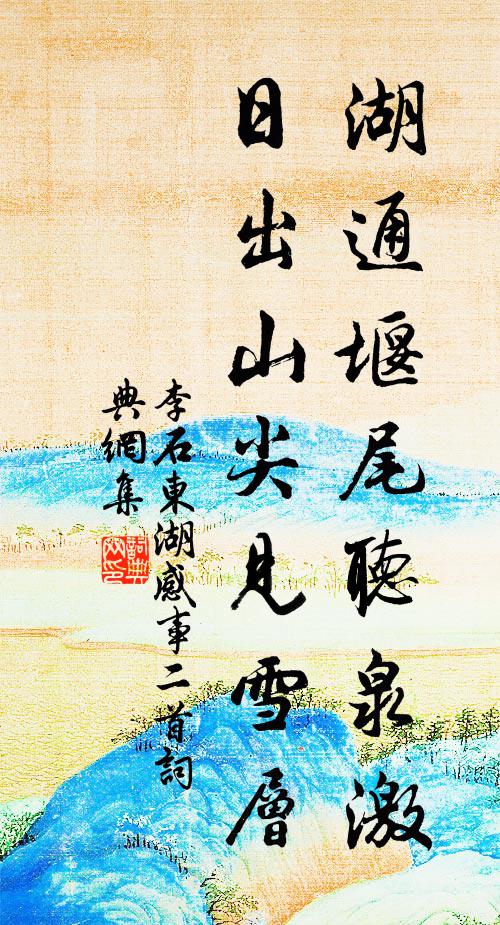 湖通堰尾聽泉激
日出山尖見雪層
李石東湖感事二首詞
典網集
詞典網印